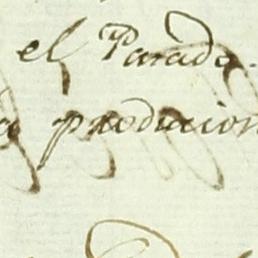 el Parado.
a producion